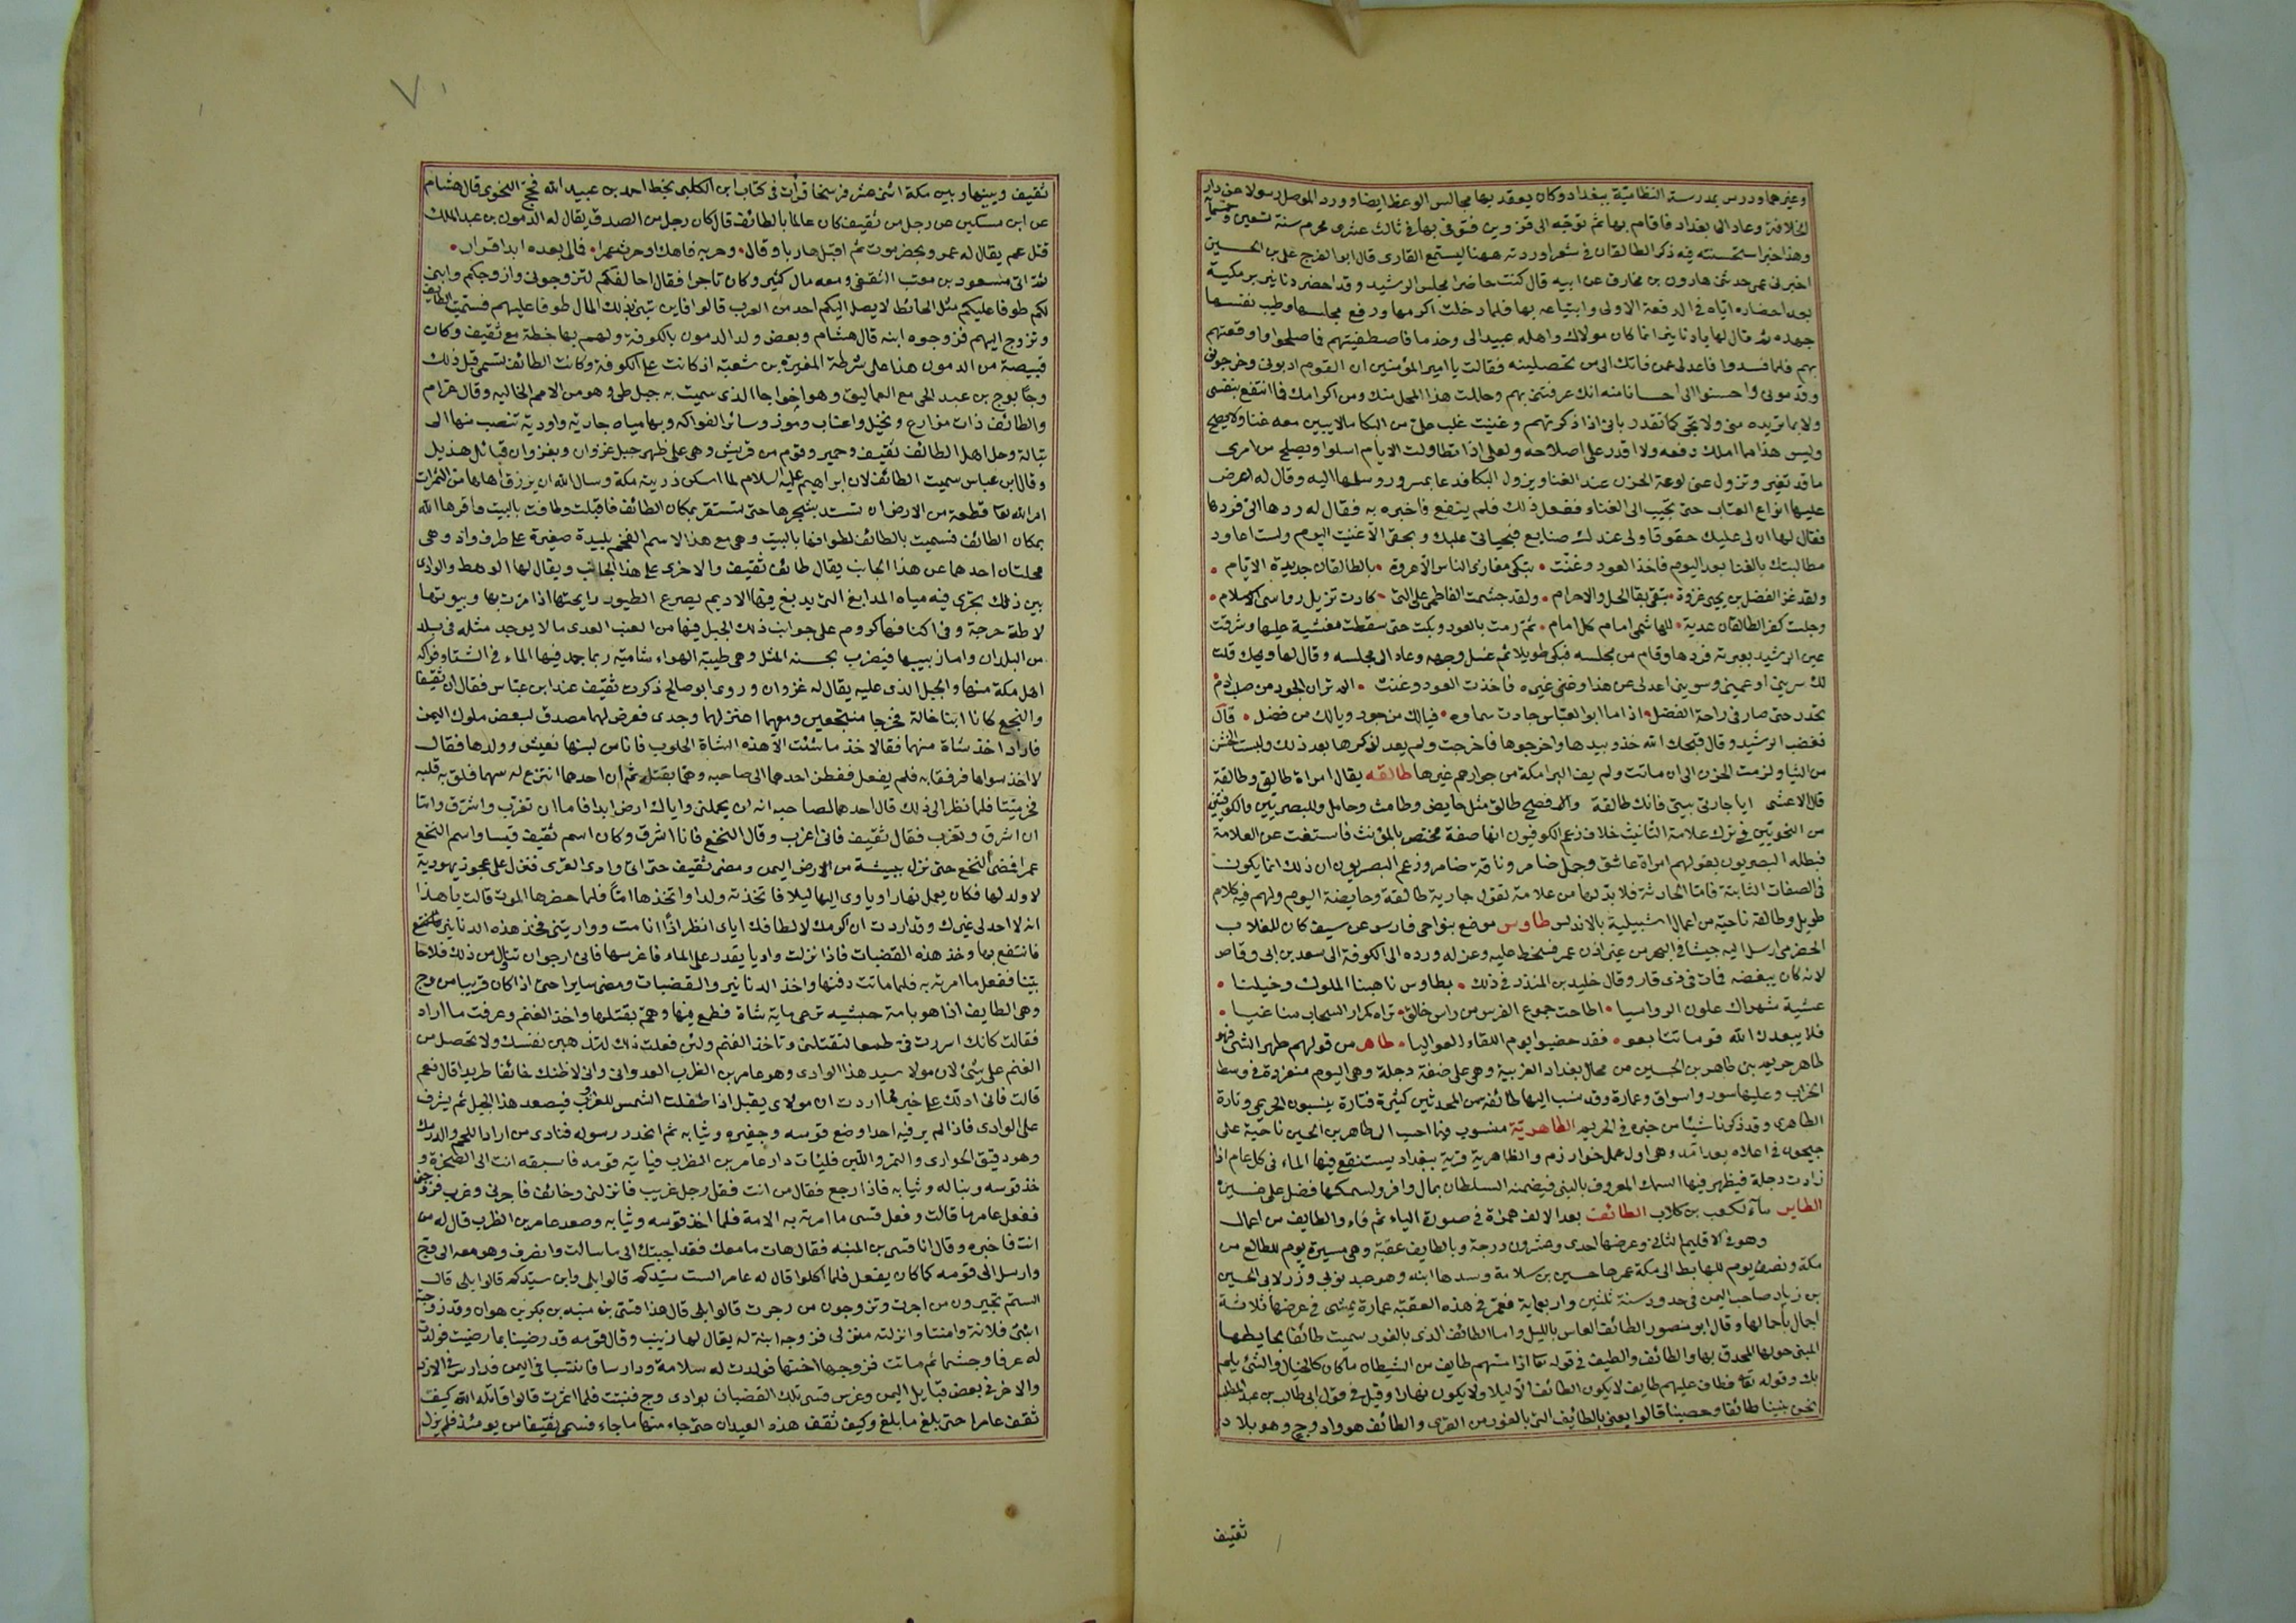 وغيرهما ودرس بمدرسة النظامية ببغداد وكان يعقد بها مجالس الوعظ ايضا وورد الموصل رسولا من دار
الخلافة وعاد الى بغداد فاقام بها ثم توجه الى قزوين فتوفى بها فى ثالث عشرى محرم سنة تسعين وخمسمآ
وهذا خبر استحسنته فيه ذكر الطالقان فى شعر اوردته ههنا ليستمتع القارى قال ابو الفرج على بن الحسين
اخبرنى عمى حدثنى هارون بن مخارق عن ابيه قال كنت حاضرا مجلس الرشيد وقد احضر دنانير برمكية
بعد احضاره اياه فى الدفعة الاولى وابتياعه بها فلما دخلت اكرمها ورفع مجلسها وطيب نفسها
جهده ثم قال لها يا دنانير انما كان مولاك واهله عبيدا لى وخدما فاصطفيتهم فما صلحوا واوقعتهم
بهم فلما فسدوا فاعدلى عمن فاتك الى من تحصلينه فقالت يا امير المؤمنين ان القوم ادبونى وخرجونى
وقدمونى واحسنوا الى احسانا منه انك عرفتنى بهم وحللت هذا المحل منك ومن اكرامك فما انتفع بنفسى
ولا بما تريده منى ولا يجى كما تقدر بانى اذا ذكرتهم وغنيت غلب على من البكا ما لا يبين معه غنا ولا يصح
وليس هذا مما املك دفعه ولا اقدر على اصلاحه ولعلى اذا تطاولت الايام اسلوا ويصلح من امرى
ما قد تغير وتزول عنى لوعة الحزن عند الغنا ويزول البكا فدعا بمسرور وسلمها اليه وقال له اعرض
عليها انواع العتاب حتى تجيب الى الغنا وففعل ذلك فلم ينفع فاخبره به فقال له ردها الى فردها
فقال لها ان لى عليك حقوقا ولى عندك صنايع فبحياتى عليك وبحقى الا غنيت اليوم ولست اعاود
مطالبتك بالغنا بعد اليوم فاخذ العود وغنت • تبكى مغازى الناس الا غزوة • بالطالقان جديدة الايام •
ولقد غزا الفضل بن يحيى غزوة • تبقى بقا الحل والاحرام • ولقد حشمت الفاطمى على التى • كادت تزيل رواسى الاسلام •
وجلت كفر الطالقان هدية • للهاشمى امام كل امام • ثم رمت بالعود وبكت حتى سقطت مغشية عليها وشرقت
عين الرشيد بعبرته فردها وقام من مجلسه فبكى طويلا ثم غسل وجهه وعاد الى مجلسه وقال لها ويحك قلت
لك سرينى او غمينى وسوينى اعدلى عن هذا وغنى غيره فاخذت العود وغنت • الم تر ان الجود من صلب ادم
تحدر حتى صار فى راحة الفضل • اذا ما ابو العباس جادت سماوه • فيالك من جود ويالك من فضل • قال
فغضب الرشيد وقال قبحك الله خذو بيدها واخرجوها فاخرجت ولم يعد لذكرها بعد ذلك ولبست الخشن
من الثيا ولزمت الحزن الى ان ماتت ولم يف البرامكة من جوارهم غيرها طالقه يقال امراة طالق وطالقة
قال الاعشى ايا جارتى بينى فانك طالقة والافصح طالق مثل حايض وطامث وحامل وللبصريين والكوفيين
من النحويين فى ترك علامة التانيث خلاف زعم الكوفيون انها صفة مختص بالمؤنث فاستغنت عن العلامة
فبطله البصريون بقولهم امراة عاشق وجمل ضامر وناقة ضامر وزعم البصريون ان ذلك انما يكون
فى الصفات الثابتة فاما الحادثة فلا بد لها من علامة تقول جارية طالقة وحايضة اليوم ولهم فيه كلام
طويل وطالقه ناحية من اعمال اشبيلية بالاندلس طاوس موضع بنواحى فارس وعن سيف كان للعلاب
الحضرمى ارسل اليه جيشا فى البحر من غير اذن عمر فسخط عليه وعزله ورده الى الكوفة الى سعد بن ابى وقاص
لانه كان يبغضه فمات فى ذى قار وقال خليد بن المنذر فى ذلك • بطاوس ناهبنا الملوك وخيلنا •
عشية شهراك علون الرواسيا • اطاحت جموع الفرس من راس حالق • تراه كمرار السحاب مناغيا •
فلا يبعدن الله قوما تتابعو • فقد خضبوا يوم اللقاء العواليا • طاهر من قولهم طهر الشئ فهو
طاهر حريم بن طاهر بن الحسين من محال بغداد الغربية وهى على ضفة دجلة وهى اليوم منفردة فى وسط
الخراب وعليها سور واسواق وعمارة وقد نسب اليها طائفة من المحدثين كثيرة فتارة ينسبون الحريمى وتارة
الطاهرى وقد ذكرنا شيئا من خبره فى الحريم الطاهرية منسوب فيما احسب الى طاهر بن الحسين ناحية على
جيحون فى اعلاه بعد امد وهى اول عمل خوارزم والظاهرية قرية ببغداد يستنقع فيها الماء فى كل عام اذا
زادت دجلة فيظهر فيها السمك المعروف بالبنى فيضمنه السلطان بمال وافر ولسمكها فضل على غيره
الطاير ماء لكعب بن كلاب الطائف بعد الالف همزة فى صورة الياء ثم فاء والطايف من اعمال
وهو فى الاقليم الثانى وعرضها احدى وعشرون درجة وبالطايف عقبة وهى مسيرة يوم للطالع من
مكة ونصف يوم للهابط الى مكة عمرها حسين بن سلامة وسدها ابنه وهو عبد نوبى وزر لابى الحسين
بن زياد صاحب اليمن فى حدود سنة ثلثين واربعماية فعمر فى هذه العقبة عمارة يمشى فى عرضها ثلاثة
اجمال باحمالها وقال ابو منصور الطائف العاس بالليل واما الطائف الذى بالغور سميت طائفا بحايطها
المبنى حولها المحدق بها والطائف والطيف فى قوله تعا اذا مسهم طايف من الشيطان ما كان كالخيال والشئ يلم
بك وقوله تعا فطاف عليهم طايف لا يكون الطائف الا ليلا ولا يكون نهارا وقيل فى قول ابى طالب بن عبد المطلب
نحن بنينا طائفا حصينا قالوا يعنى بالطايف التى بالغور من القرى والطائف هو وادى وج وهو بلاد
ثقيف
٧٠
ثقيف وبينها وبين مكة اثنى عشر فرسخا قرأت فى كتاب ابن الكلبى بخط احمد بن عبيد الله فحج النخوى قال هشام
عن ابن مسكين عن رجل من ثقيف كان عالما بالطائف قال كان رجل من الصدف يقال له الدمون بن عبد الملك
قتل عم يقال له عمر وبحضرموت ثم اقبل هاربا وقال • وحربه ناهك اوحرث عمرا • فمالى بعده ابدا قرار •
ثم اتى مسعود بن معتب الثقفى ومعه مال كثير وكان تاجرا فقال احالفكم لتزوجونى وازوجكم وابنى
لكم طوفا عليكم مثل الحائط لا يصل اليكم احد من العرب قالوا فابن تبنى بذلك المال طوفا عليهم فسميت الطايف
وتزوج اليهم فزوجوه ابنه قال هشام وبعض ولد الدمون بالكوفة ولهم بها خطة مع ثقيف وكان
قبيصة من الدمون هذا على شرطة المغيرة بن شعبة اذ كانت على الكوفة وكانت الطائف تسمى قبل ذلك
وجا بوج بن عبد الحى مع العماليق وهو اخو اجا الذى سميت به جبل طى وهو من الامم الخاليه وقال عرام
والطائف ذات مزارع ونخيل واعناب وموز وسائر الفواكه وبها مياه جارية واودية تنصب منها الى
تبالة وجل اهل الطائف ثقيف وحمير وقوم من قريش وهى على ظهر جبل غزوان وبغزوان قبائل هذيل
وقال ابن عباس سميت الطائف لان ابراهيم عليه السلام لما اسكن ذريته مكة وسال الله ان يرزق اهلها من الثمرات
امر الله تعا قطعة من الارض ان تسير بشجرها حتى تستقر بمكان الطائف فاقبلت وطافت بالبيت فاقرها الله
بمكان الطائف فسميت بالطائف لطوافها بالبيت وهى مع هذا الاسم الفخم بليدة صغيرة على طرف واد وهى
محلتان احدهما عن هذا الجانب يقال طائف ثقيف والاخرى على هذا الجانب ويقال لها الوهط والوادى
بين ذلك تجرى فيه مياه المدابغ التى يدبغ فيها الاديم يصرع الطيور رايحتها اذا مرت بها وبيوتها
لاطة حرجة وفى اكنافها كروم على جوانب ذلك الجبل فيها من العنب العدى ما لا يوجد مثله فى بلد
من البلدان واما زبيبها فيضرب بحسنه المثل وهى طيبة الهواء شامية ربما جمد فيها الماء فى الشتا وفواكه
اهل مكة منها والجبل الذى عليه يقال له غزوان وروى ابو صالح ذكرت ثقيف عند ابن عباس فقال ان ثقيفا
والنخع كانا ابنا خالة فخرجا منتجعين ومعهما اعنز لهما وجدى فعرض لهما مصدق لبعض ملوك اليمن
فاراد اخذ شاة منهما فقالا خذ ما شئت الا هذه الشاة الحلوب فانا من لبنها نعيش وولدها فقال
لا اخذ سواها فرفقا به فلم يفعل ففطن احدهما الى صاحبه وهما بقتله ثم ان احدهما انتزع له سهما فلق به قلبه
فخر ميتا فلما نظر الى ذلك قال احدهما لصاحبه انه لن يحملنى واياك ارض ابدا فاما ان تغرب واشرق واما
ان اشرق وتغرب فقال ثقيف فانى اغرب وقال النخع فانا اشرق وكان اسم ثقيف قيسا واسم النخع
عمرا فمضى النخع حتى نزل ببيشة من الارض اليمن ومضى ثقيف حتى اتى وادى القرى فنزل على عجوز يهودية
لا ولد لها فكان يعمل نهارا وياوى اليها ليلا فاتخذته ولدا واتخذها اما فلما حضرها الموت قالت يا هذا
انه لا احد لى غيرك وقد اردت ان اكرمك لالطافك اياى انظر اذا انا مت ووارينى فخذ هذه الدنانير فانتفع
فانتفع بها وخذ هذه القضبات فاذا نزلت واديا يقدر على الماء فاغرسها فانى ارجو ان تنال من ذلك فلاحا
بينا ففعل ما امرته به فلما ماتت دفنها واخذ الدنانير والقضبات ومضى سايرا حتى اذا كان قريبا من وج
وهى الطايف اذا هو بامة حبشيه ترعى ماية شاة فطمع فيها وهم بقتلها واخذ الغنم وعرفت ما اراد
فقالت كانك اسررت فى طمعا لتقتلنى وتاخذ الغنم ولئن فعلت ذلك لتذهبن نفسك ولا تحصل من
الغنم على شئ لان مولا سيد هذا الوادى وهو عامر بن الظرب العدوانى وانى لاظنك خائفا طريدا قال نعم
قالت فانى ادلك على خير مما اردت ان مولاى يقبل اذا طفلت الشمس للغروب فيصعد هذا الجبل ثم يشرف
على الوادى فاذا لم ير فيه احدا وضع قوسه وجفيره وثيابه ثم انحدر رسوله فنادى من اراد اللحم والدرمك
وهو دقيق الحوارى والتمر واللبن فليات دار عامر بن الظرب فياتيه قومه فاسبقه انت الى الصخرة و
خذ قوسه ونباله وثيابه فاذا رجع فقال من انت فقل رجل غريب فانزلنى وخائف فاجرنى وغرب فزوجنى
ففعل عامر ما قالت وفعل قسى ما امرته به الامة فلما اخذ قوسه وثيابه وصعد عامر بن الظرب قال له من
انت فاخبره وقال انا قسى بن المنبه فقال هات ما معك فقد اجبتك الى ما سالت وانصرف وهو معه الى وج
وارسل الى قومه كما كان يفعل فلما اكلوا قال له عامر الست سيدكم قالوا بلى وابن سيدكم قالوا بلى قال
الستم تجيرون من اجرت وتزوجون من زوجت قالوا بلى قال هذا قسى بن منبه بن بكر بن هوازن وقد زوجته
ابنتى فلانة وامنته وانزلته منزلى فزوجه ابنة له يقال لها زينب وقال قومه قد رضينا بما رضيت فولدت
له عرفا وجشما ثم ماتت فزوجها اختها فولدت له سلامة ودارسا فانتسبا فى اليمن فدارس فى الازد
والاخر فى بعض قبايل اليمن وغرس قسى تلك القضبان بوادى وج فنبتت فلما اثمرت قالوا قاتله الله كيف
ثقف عامرا حتى بلغ ما بلغ وكيف ثقف هذه العيدان حتى جاء منها ما جاء فسمى ثقيفا من يومئذ فلم يزل